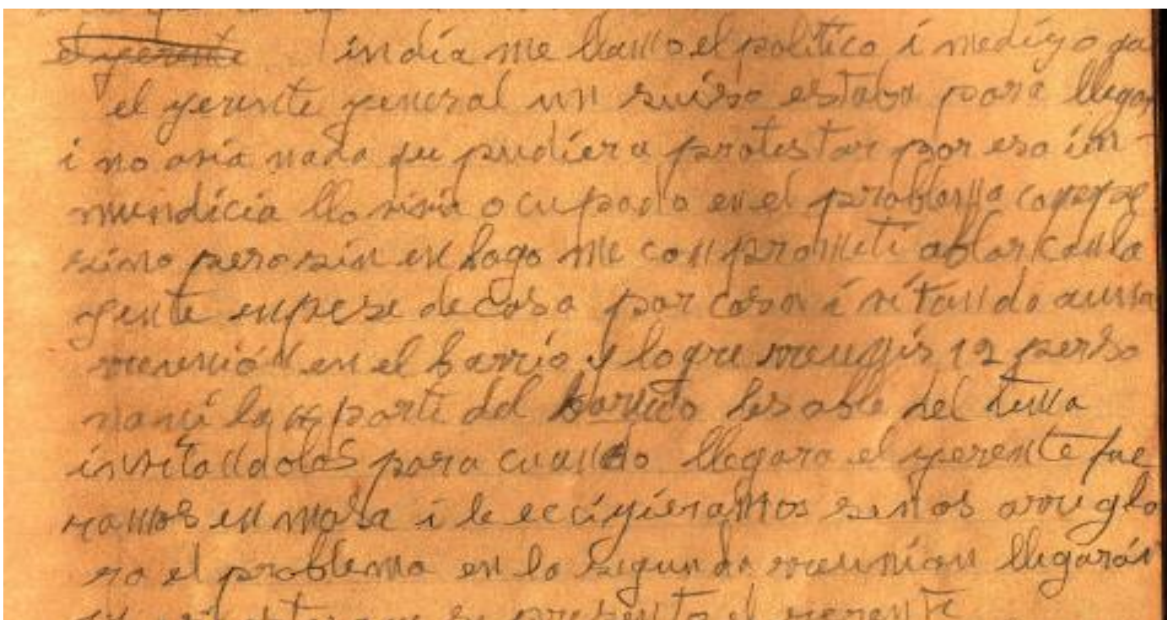 el yerente   un dia me llamo el politico i me digo qu
el yerente yeneral un suiso estava para llegar
i no avia nada qu pudiera protestar por esa in-
mundicia llo vivia ocupado en el problema
pero sin en bago me comprometi ablar con la
gente enpese de casa por casa invitando auna
reunión en el barrio y logre reunir 12 perso
nas i la parte del barrito les able del tema
invitandolos para cuando llegara el yerente fue
ramos en masa i le eccigieramos se nos arregla
ra el problema en la segunda reunion llegarón
que se presento el yerente